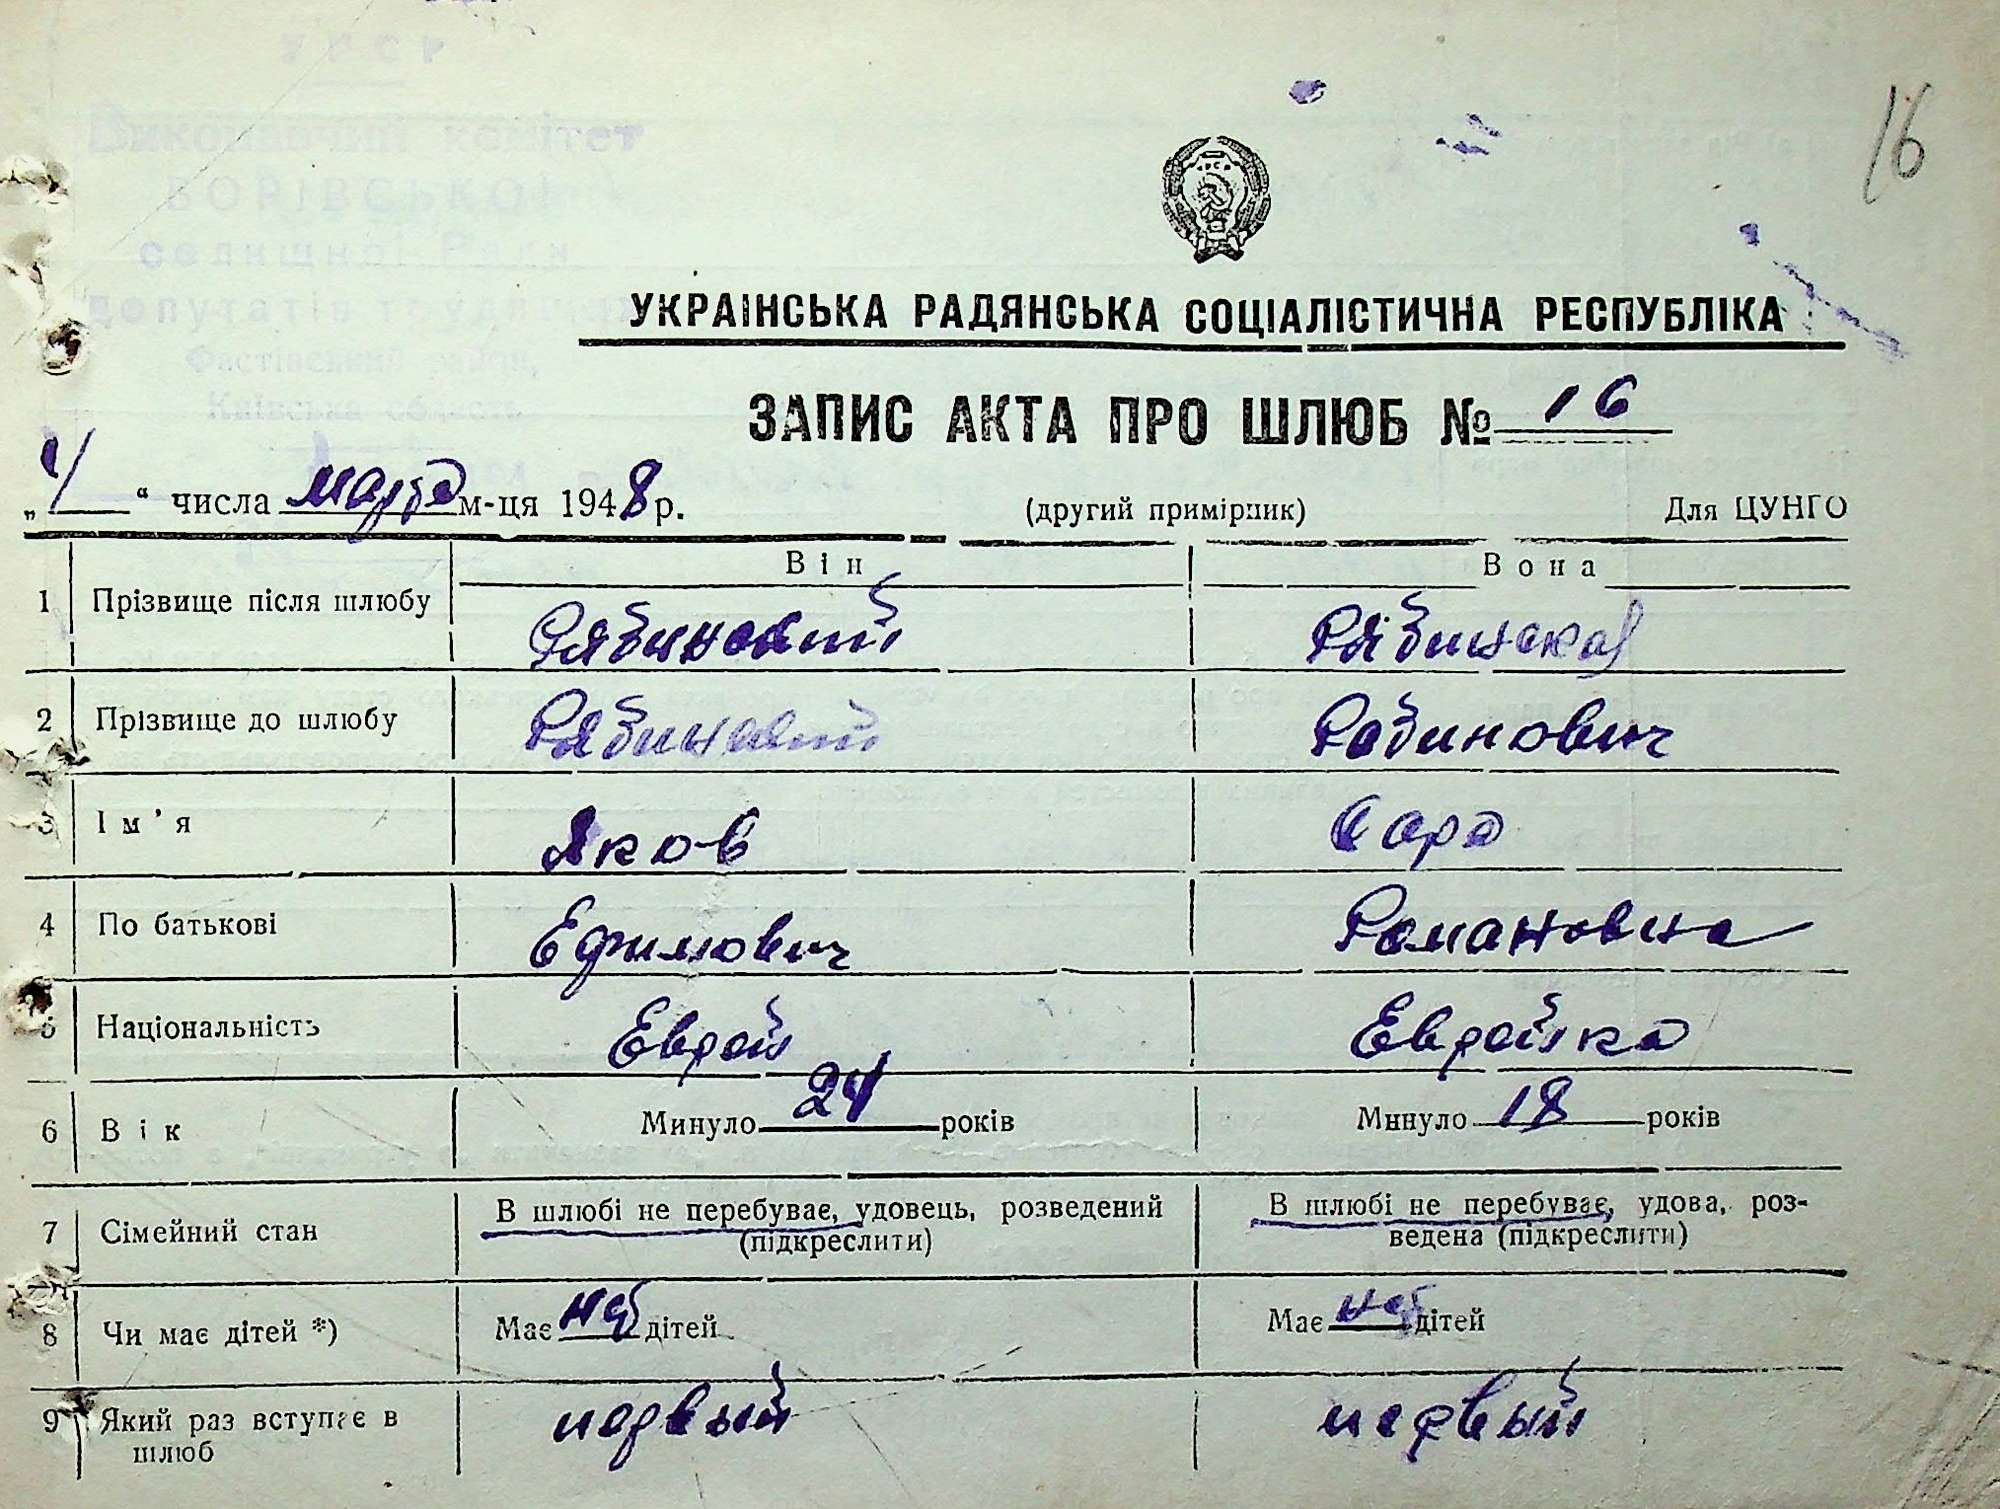 16
УРСР
Виконавчий комітет
БОРІВСЬКОЇ
селищної Ради
депутатів трудящих
Фастівський район,
Київська область
УКРАІНСЬКА РАДЯНСЬКА СОЦІАЛІСТИЧНА РЕСПУБЛІКА
ЗАПИС АКТА ПРО ШЛЮБ № 16
„4“ числа марта м-ця 1948 р. (другий примірник) Для ЦУНГО
Він Вона
1 Прізвище після шлюбу Рябинский Рябинская
2 Прізвище до шлюбу Рябинский Рабинович
3 Ім'я Яков Сара
4 По батькові Ефимович Романовна
5 Національність Еврей Еврейка
6 Вік Минуло 24 років Минуло 18 років
7 Сімейний стан В шлюбі не перебуває, удовець, розведений (підкреслити) В шлюбі не перебуває, удова, роз-
ведена (підкреслити)
8 Чи має дітей *) Має нет дітей Має нет дітей
9 Який раз вступає в шлюб первый первый